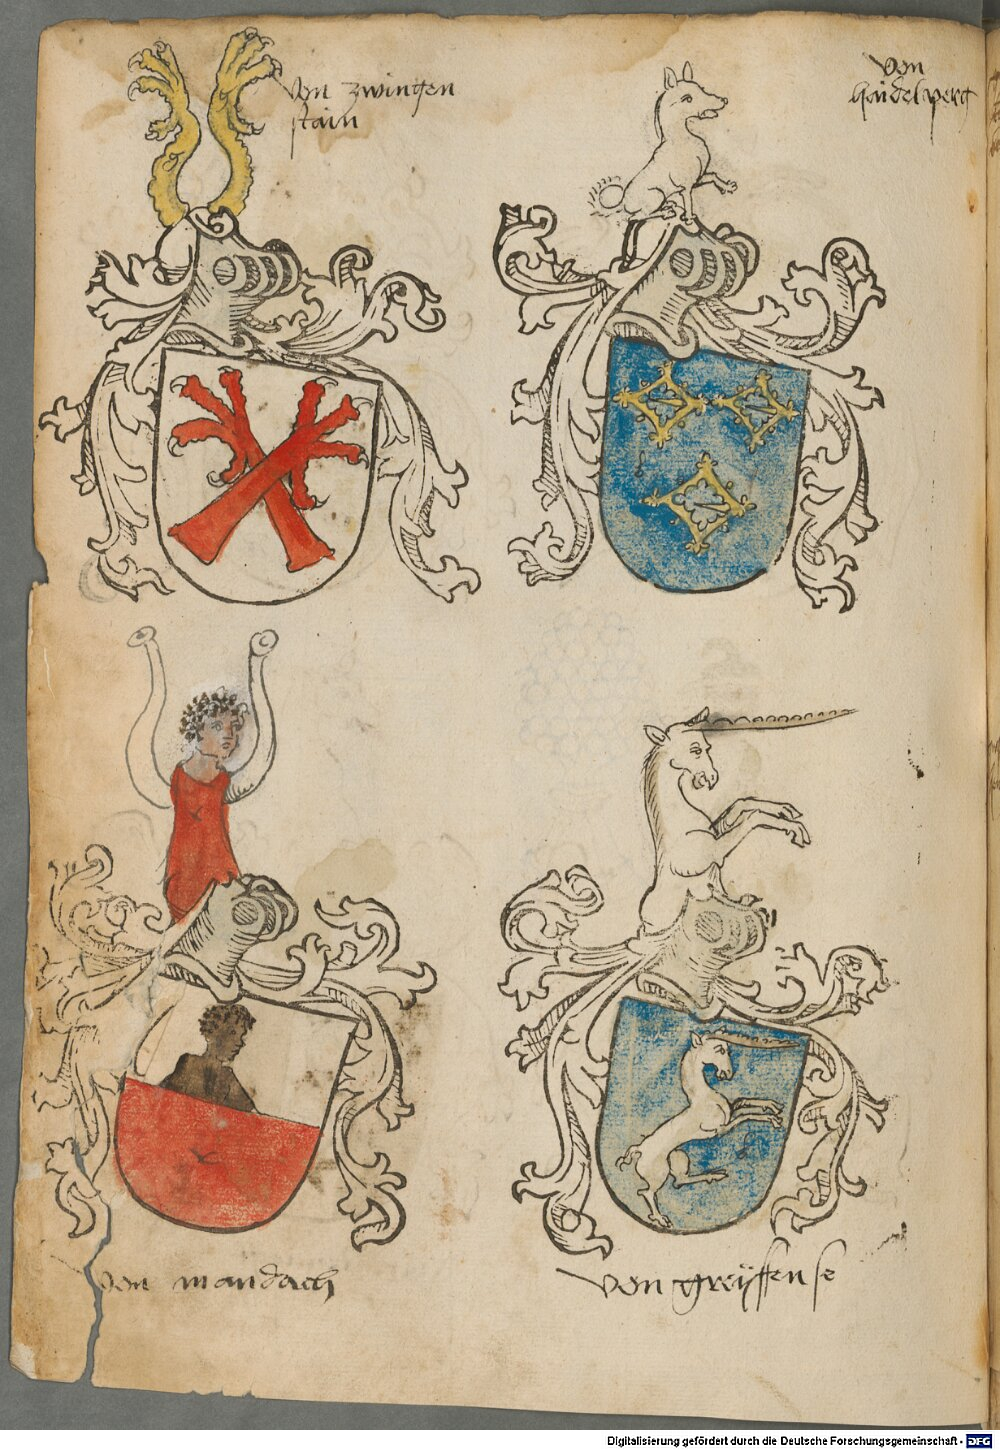 von zwingen
stain
von
haidelperg
von mandach
von greÿffen se
Digitalisierung gefördert durch die Deutsche Forschungsgemeinschaft - DFG